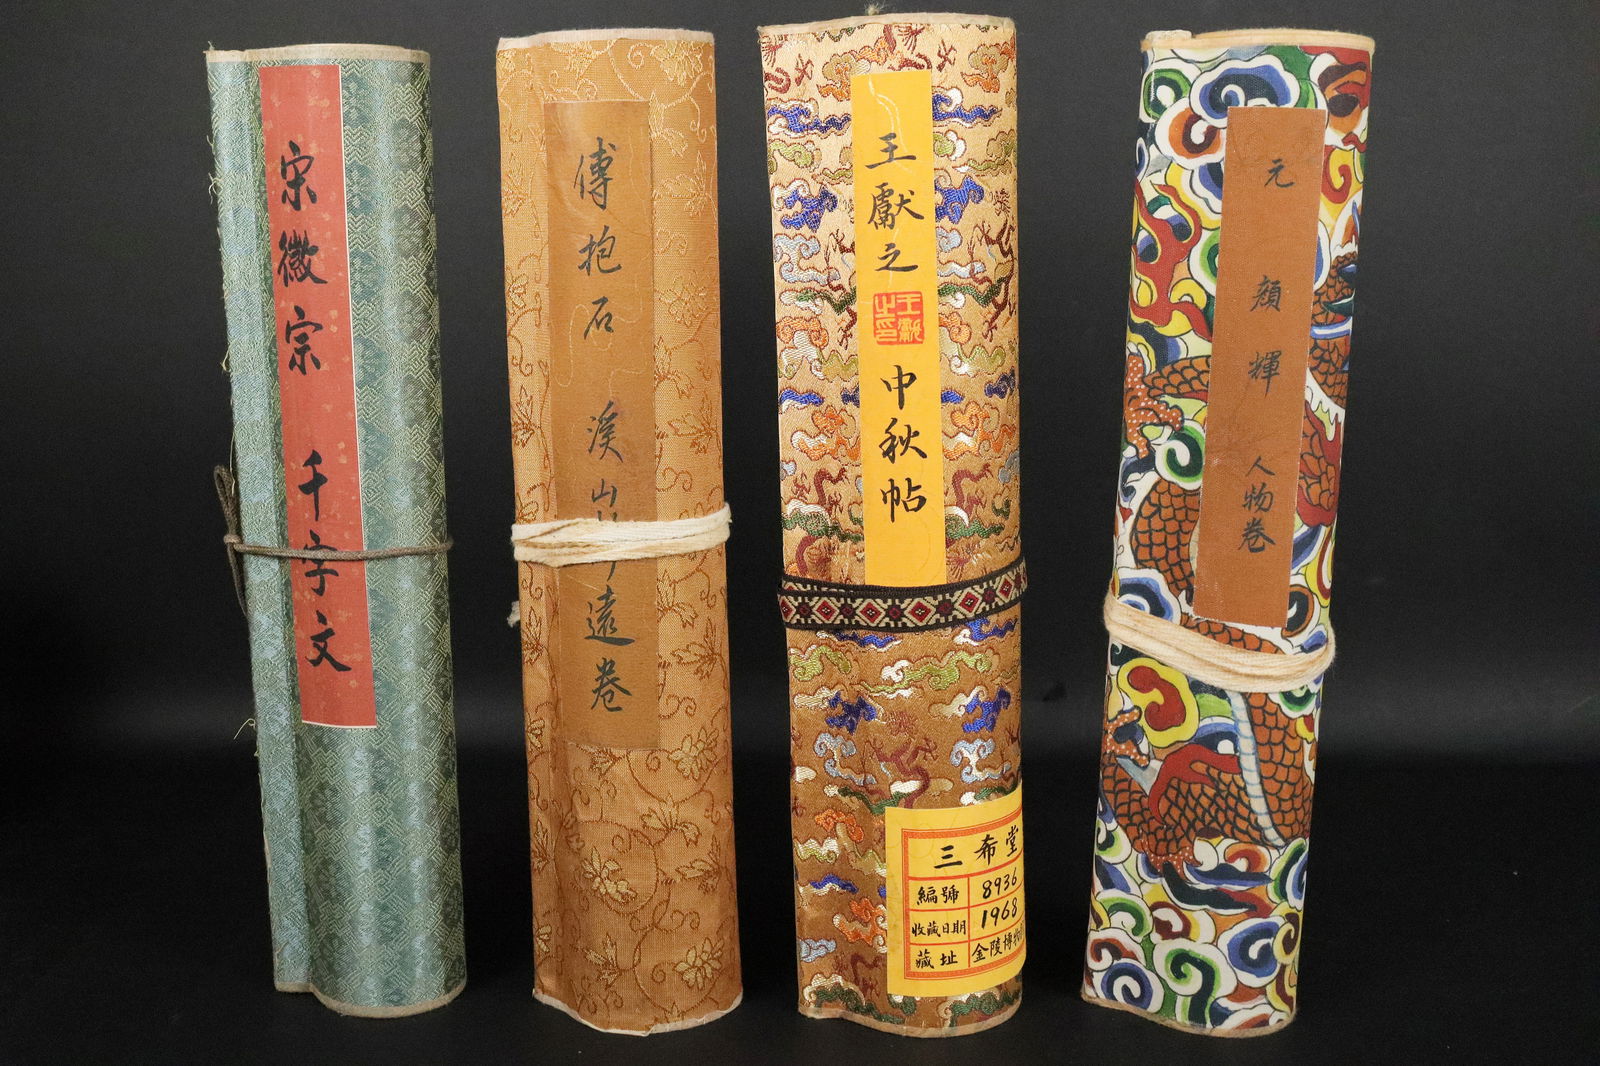 宋徽宗 千字文
傅抱石 溪山
遠卷
王獻之
王獻之印
中秋帖
三希堂
編號 8936
收藏日期 1968
藏址 金陵博物
元 顏輝 人物卷